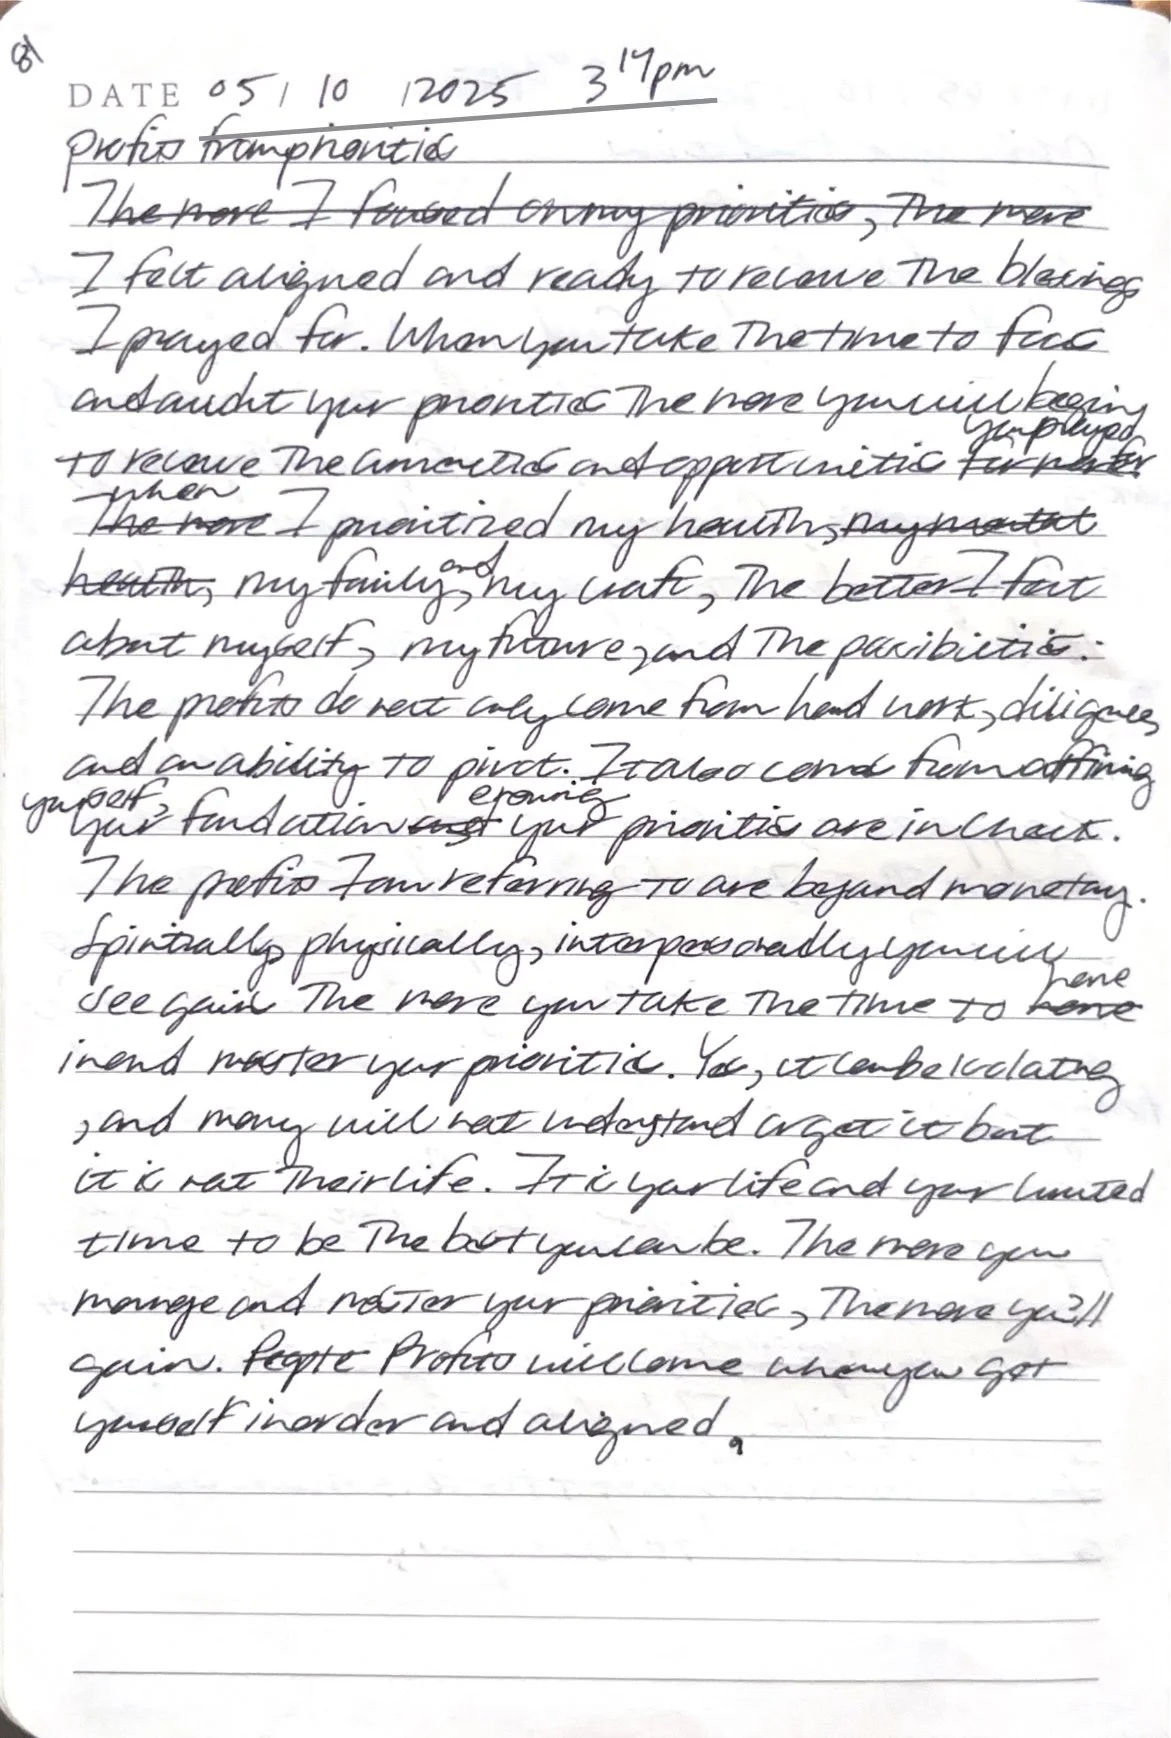 81
DATE 05/10/2025 3 14pm
profits from priorities
The more I focused on my priorities, The more
I felt aligned and ready to receive The blessings
I prayed for. When you take The time to focus
and audit your priorities The more you will begin
you prayed
to receive The and opportunities for
when
The more I prioritized my health, my mental
and
health, my family, my craft, The better I felt
about myself, my future, and The possibilities.
The profits do not only come from hard work, diligence,
and an ability to pivot. It also comes from
yourself, ensuring
your foundation and your priorities are in check.
The profits I am referring to are beyond monetary.
Spiritually, physically, interpersonally you will
hone
see gains The more you take The time to hone
in and master your priorities. Yes, it can be isolating
, and many will not understand or get it but
it is not Their life. It is your life and your limited
time to be The best you can be. The more you
manage and master your priorities, The more you'll
gain. People Profits will come when you get
yourself in order and aligned.